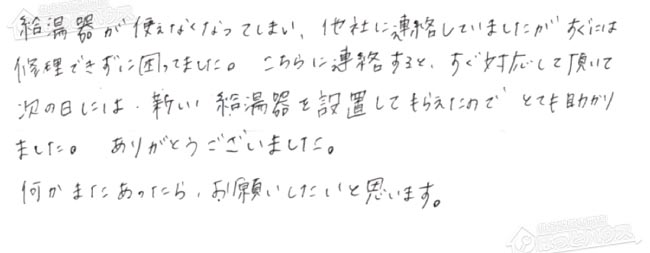 給湯器が使えなくなってしまい、他社に連絡していましたがすぐには
修理できずに困ってました。こちらに連絡すると、すぐ対応して頂いて
次の日には、新しい給湯器を設置してもらえたのでとても助かり
ました。ありがとうございました。
何かまたあったら、お願いしたいと思います。